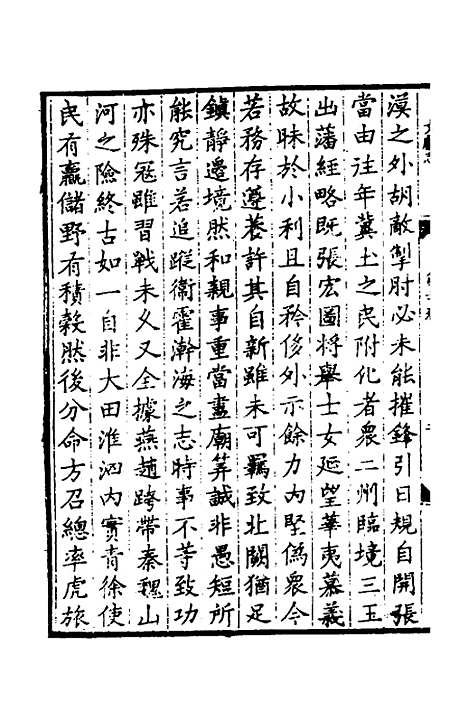 漠之外胡敵掣肘必未能摧鋒引日規自開張
當由往年冀土之民附化者衆二州臨境三王
出藩經略既張宏圖將舉士女延望華夷慕義
故昧於小利且自矜侈外示餘力内堅僞衆今
若務存遵養許其自新雖未可羈致北闕猶足
鎮靜邊境然和親事重當盡廟筭誠非愚短所
能究言若追蹤衛霍瀚海之志時事不等致功
亦殊冦雖習戰未乆又全據燕趙跨帶秦魏山
河之險終古如一自非大田淮泗内實青徐使
民有贏儲野有積穀然後分命方召總率虎旅